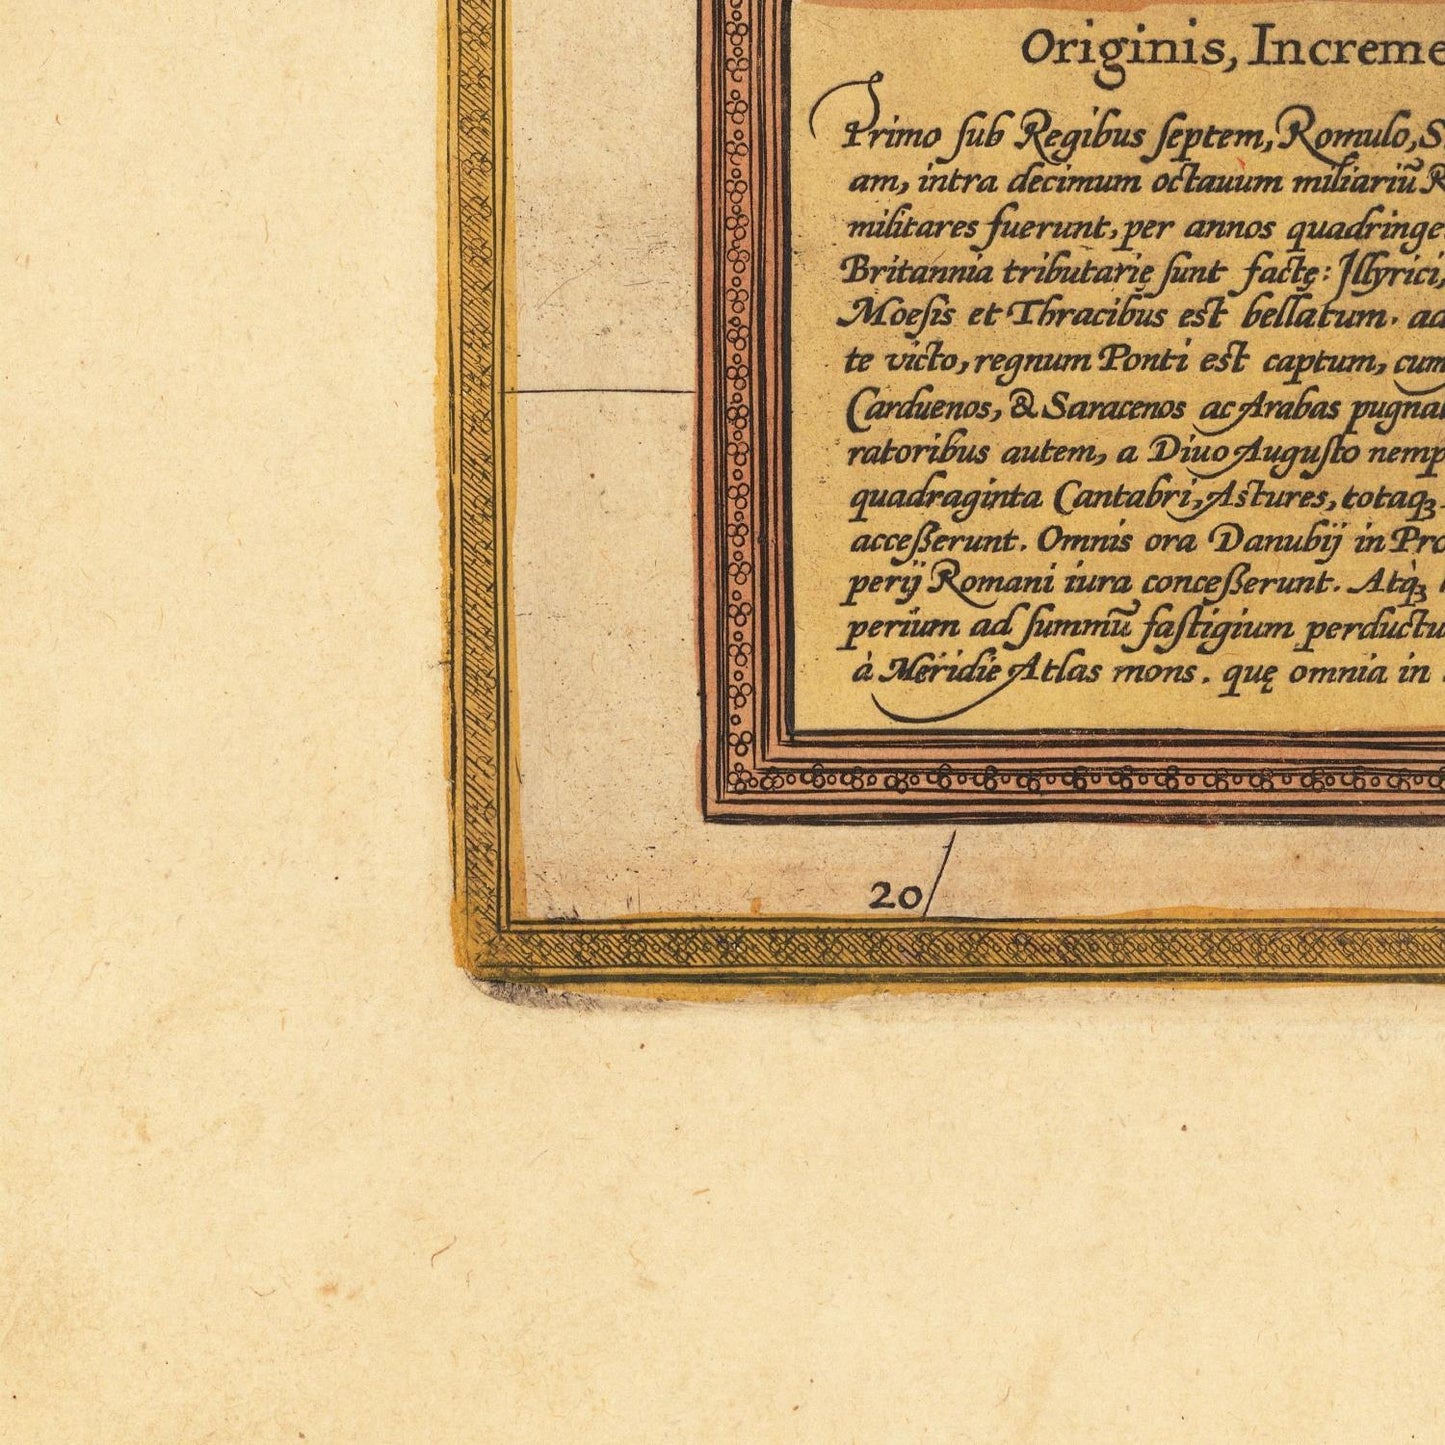 Originis, Increme
Primo ſub Regibus ſeptem, Romulo, S
am, intra decimum octauum miliariũ R
militares fuerunt, per annos quadringe
Britannia tributarię ſunt factę: Illyrici,
Moeſis et Thracibus est bellatum. ad
te victo, regnum Ponti est captum, cum
Carduenos, & Saracenos ac Arabas pugna
ratoribus autem, a Diuo Auguſto nemp
quadraginta Cantabri, Astures, totaqȝ
acceßerunt. Omnis ora Danubij in Pro
perij Romani iura conceßerunt. Atqȝ
perium ad ſummũ faſtigium perductu
à Meridie Atlas mons. quę omnia in
20